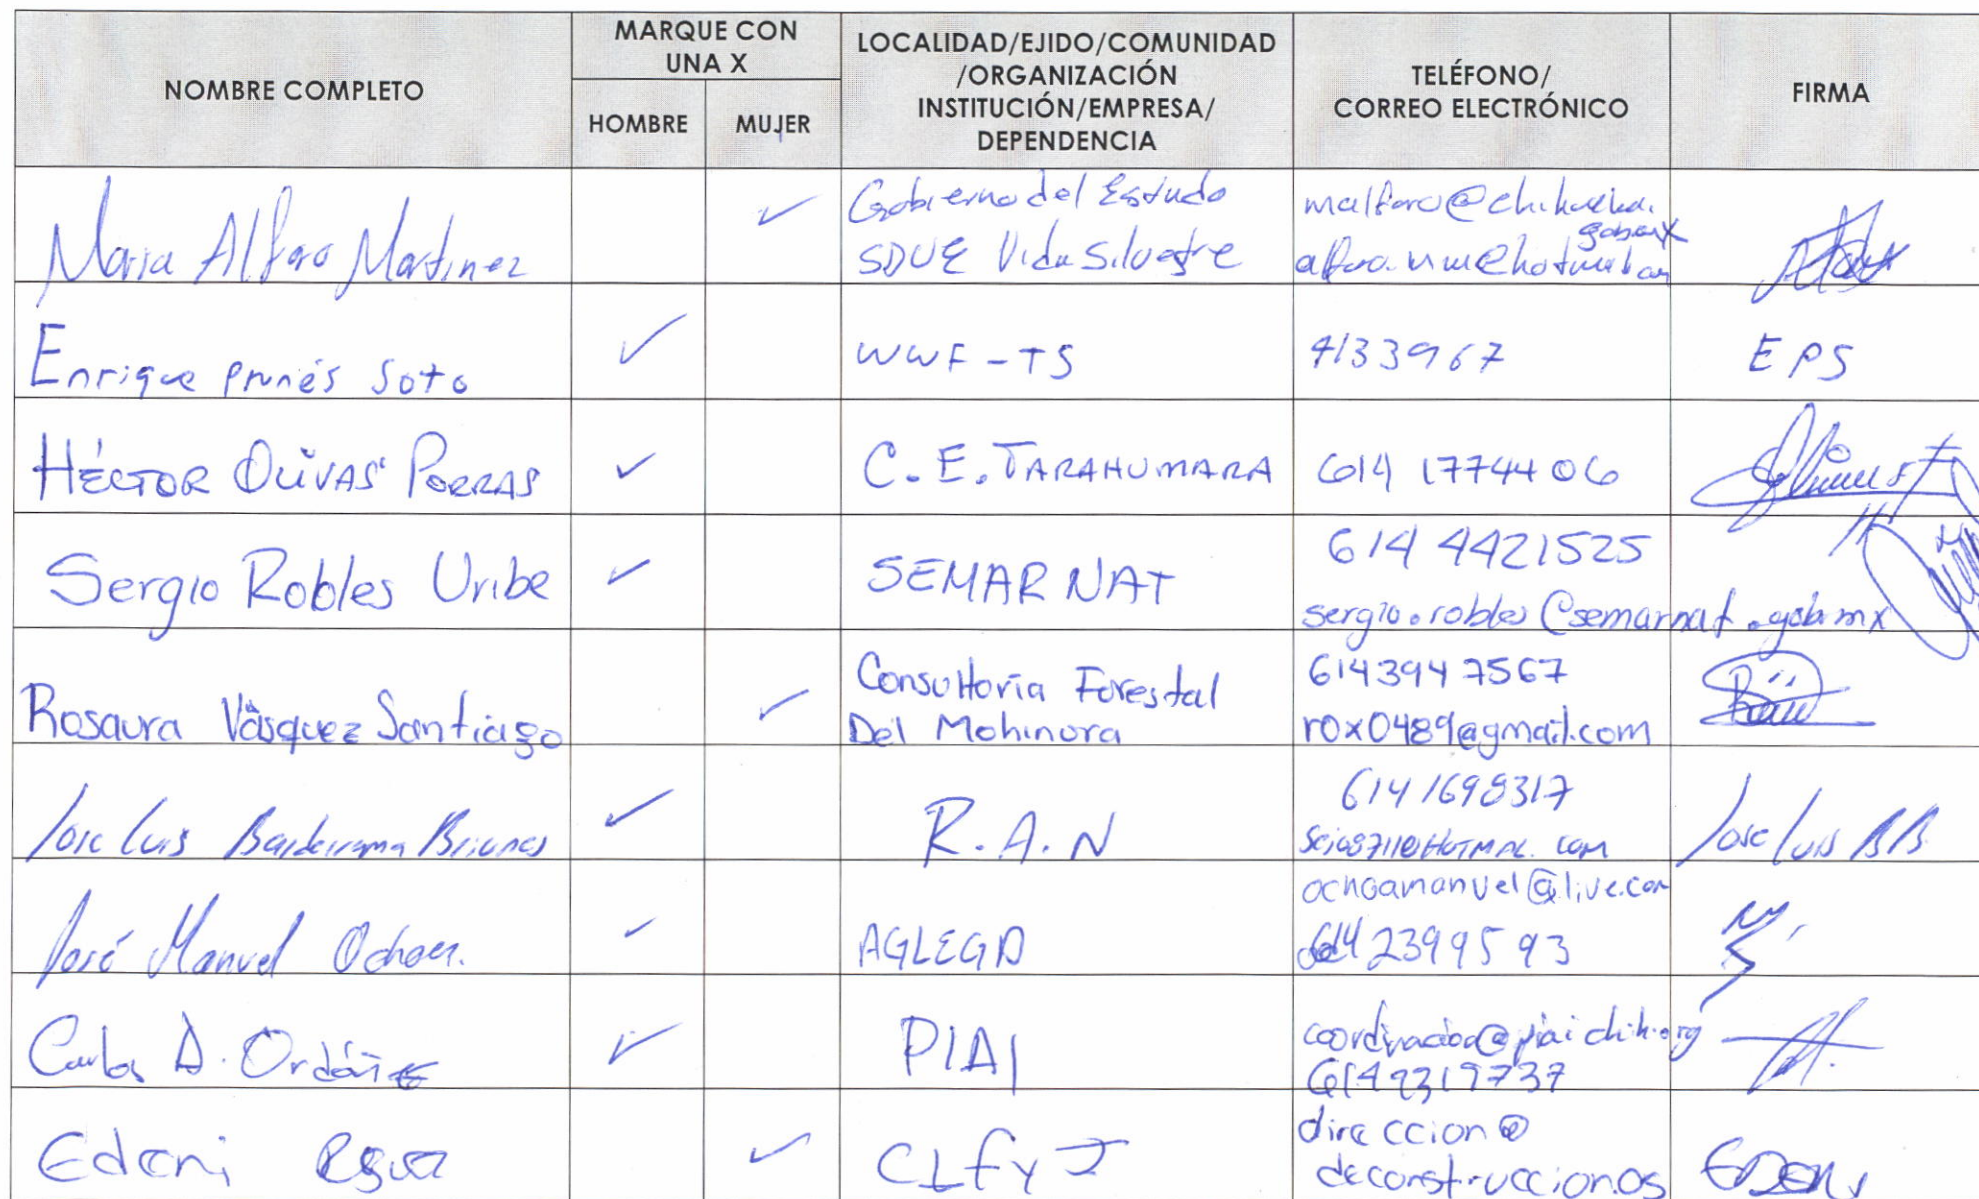 NOMBRE COMPLETO
MARQUE CON
UNA X
HOMBRE
MUJER
LOCALIDAD/EJIDO/COMUNIDAD
/ORGANIZACIÓN
INSTITUCIÓN/EMPRESA/
DEPENDENCIA
TELÉFONO/
CORREO ELECTRÓNICO
FIRMA
Maria Alfaro Martinez
Gobierno del Estado
SDUE Vida Silvestre
Enrique Prunés Soto
WWF-TS
4133967
EPS
HÉCTOR OLIVAS PORRAS
C.E. TARAHUMARA
614 1774406
Sergio Robles Uribe
SEMARNAT
614 4421525
sergio.robles@semarnat.gob.mx
Rosaura Vásquez Santiago
Consultoría Forestal
Del Mohinora
6143947567
rox0489@gmail.com
Jose Luis Balderrama Briones
R.A.N
614 1698317
Jose Luis BB
José Manuel Ochoa
AGLEGA
ochoamanuel@live.com
614 2399593
Carlos A. Ordóñez
PIAI
Edeni
CLFyJ
direccion@
deconstruccion.os
EDENI